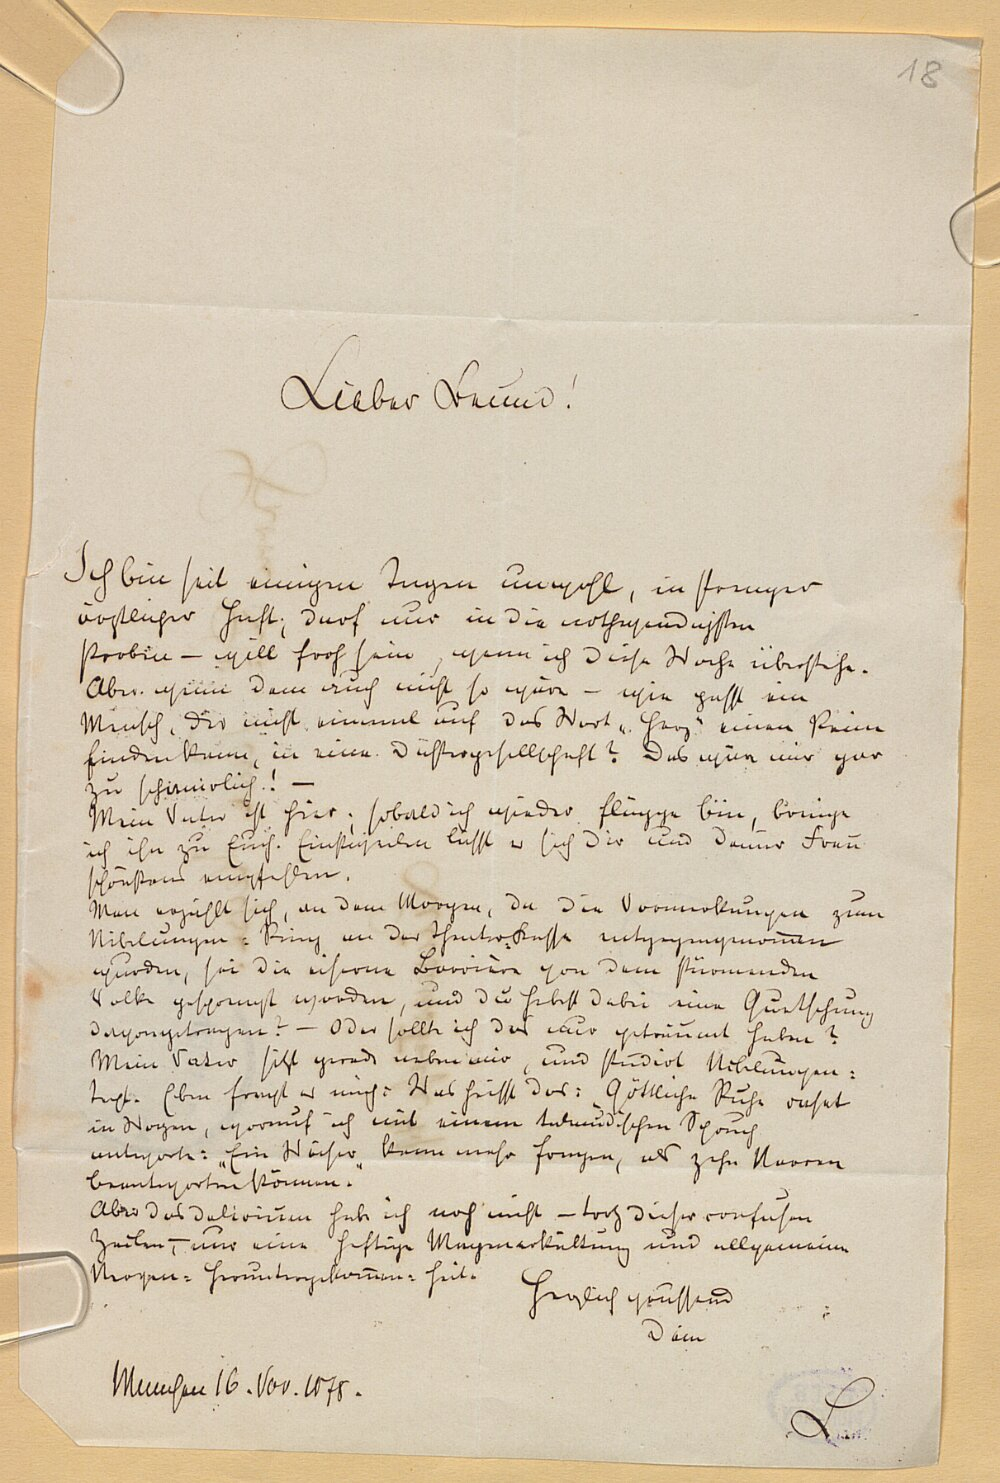 18
Lieber Freund!
Ich bin seit einigen Tagen unwohl, in strenger
ärztlicher Haft; darf nur in die nothwendigsten
Proben – will froh sein, wenn ich diese Woche überstehe.
Aber wenn dem auch nicht so wäre – wie passt ein
Mensch, der nicht einmal auf das Wort „Herz“ einen Reim
finden kann, in eine Dichtergesellschaft? Das wäre mir gar
zu schmerzlich! –
Mein Vater ist hier; sobald ich wieder flügge bin, bringe
ich ihn zu Euch. Einstweilen lässt er sich Dir und Deiner Frau
schönstens empfehlen.
Man erzählt sich, an dem Morgen, da die Vormerkungen zum
Nibelungen-Ring an der Theater-Kasse entgegengenommen
wurden, sei die eiserne Barrière von dem stürmenden
Volke gesprengt worden, und Du habst dabei eine Quetschung
davongetragen? – Oder sollte ich das nur geträumt haben?
Mein Vater sitzt gerade neben mir, und studirt Nibelungen-
text. Eben fragt er mich: Was heisst das: „Göttliche Ruhe raset
in Wogen, worauf ich mit einem talmudischen Spruch
antworte: „Ein Weiser kann mehr fragen, als zehn Narren
beantworten können.“
Aber das Delirium habe ich noch nicht – trotz dieser confusen
Zeilen –, nur eine heftige Magenerkältung und allgemeine
Nerven-Heruntergekommen-heit.
Herzlich grüssend
Dein
L
München 16. Nov. 1878.